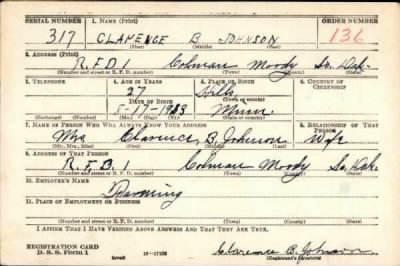 SERIAL NUMBER 1. NAME (Print) ORDER NUMBER
317 CLARENCE B JOHNSON 136
(First) (Middle) (Last)
2. ADDRESS (Print)
R.F.D. 1 Colman Moody So. Dak.
(Number and street or R. F. D. number) (Town) (County) (State)
3. TELEPHONE 4. AGE IN YEARS 5. PLACE OF BIRTH 6. COUNTRY OF CITIZENSHIP
27 Hills
DATE OF BIRTH (Town or county)
5-17-1913 Minn
(Exchange) (Number) (Mo.) (Day) (Yr.) (State or country)
7. NAME OF PERSON WHO WILL ALWAYS KNOW YOUR ADDRESS 8. RELATIONSHIP OF THAT PERSON
Mrs Clarence B. Johnson Wife
(Mr., Mrs., Miss) (First) (Middle) (Last)
9. ADDRESS OF THAT PERSON
R.F.D. 1 Colman Moody So. Dak.
(Number and street or R. F. D. number) (Town) (County) (State)
10. EMPLOYER'S NAME
Farming
11. PLACE OF EMPLOYMENT OR BUSINESS
(Number and street or R. F. D. number) (Town) (County) (State)
I AFFIRM THAT I HAVE VERIFIED ABOVE ANSWERS AND THAT THEY ARE TRUE.
REGISTRATION CARD
D. S. S. Form 1 Clarence B. Johnson
(Registrant's signature)